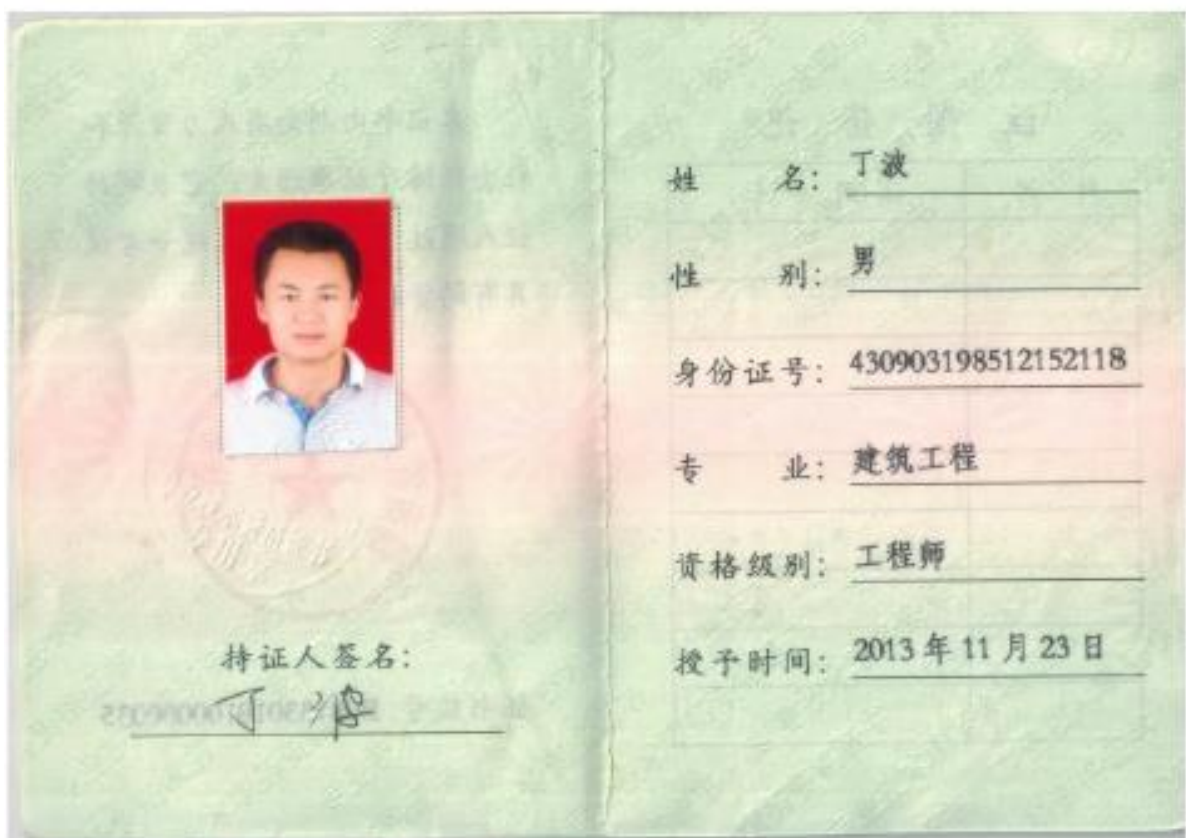 持证人签名：
丁波
姓 名：丁波
性 别：男
身份证号：430903198512152118
专 业：建筑工程
资格级别：工程师
授予时间：2013 年 11 月 23 日